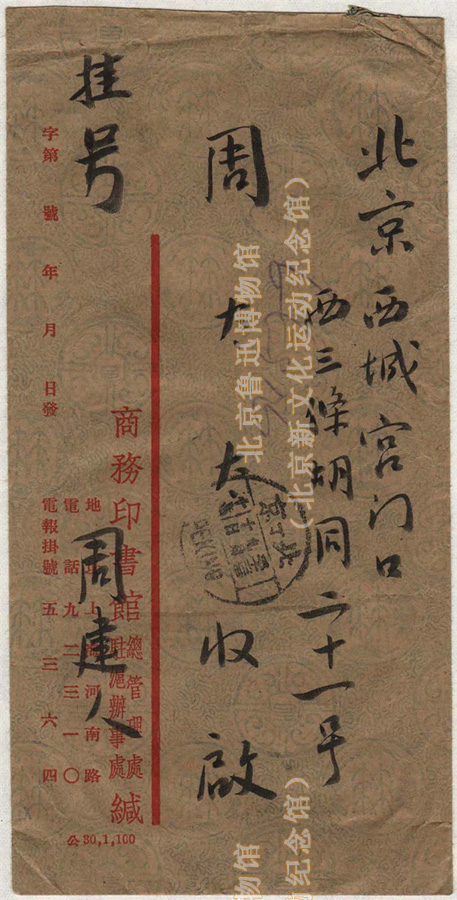 北京西城宫门口
西三條胡同二十一号
周大太收啟
挂号
周建人
字第　號　年　月　日發
商務印書館總管理處駐滬辦事處緘
地址上海河南路
電話九二三一〇
電報掛號五三六四
公30,1,100
北京
PEKING
北京鲁迅博物馆
（北京新文化运动纪念馆）
物馆
纪念馆）